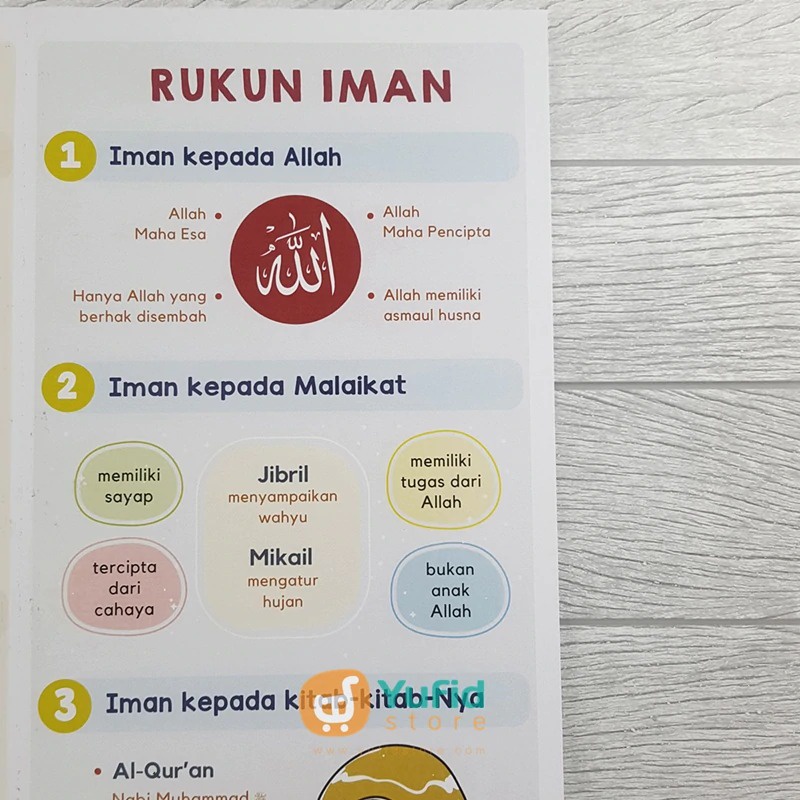 RUKUN IMAN
1 Iman kepada Allah
Allah
Maha Esa
Allah
Maha Pencipta
الله
Hanya Allah yang
berhak disembah
Allah memiliki
asmaul husna
2 Iman kepada Malaikat
memiliki
sayap
Jibril
menyampaikan
wahyu
memiliki
tugas dari
Allah
tercipta
dari
cahaya
Mikail
mengatur
hujan
bukan
anak
Allah
3 Iman kepada kitab-kitab-Nya
Yufid
store
• Al-Qur'an
Nabi Muhammad ﷺ